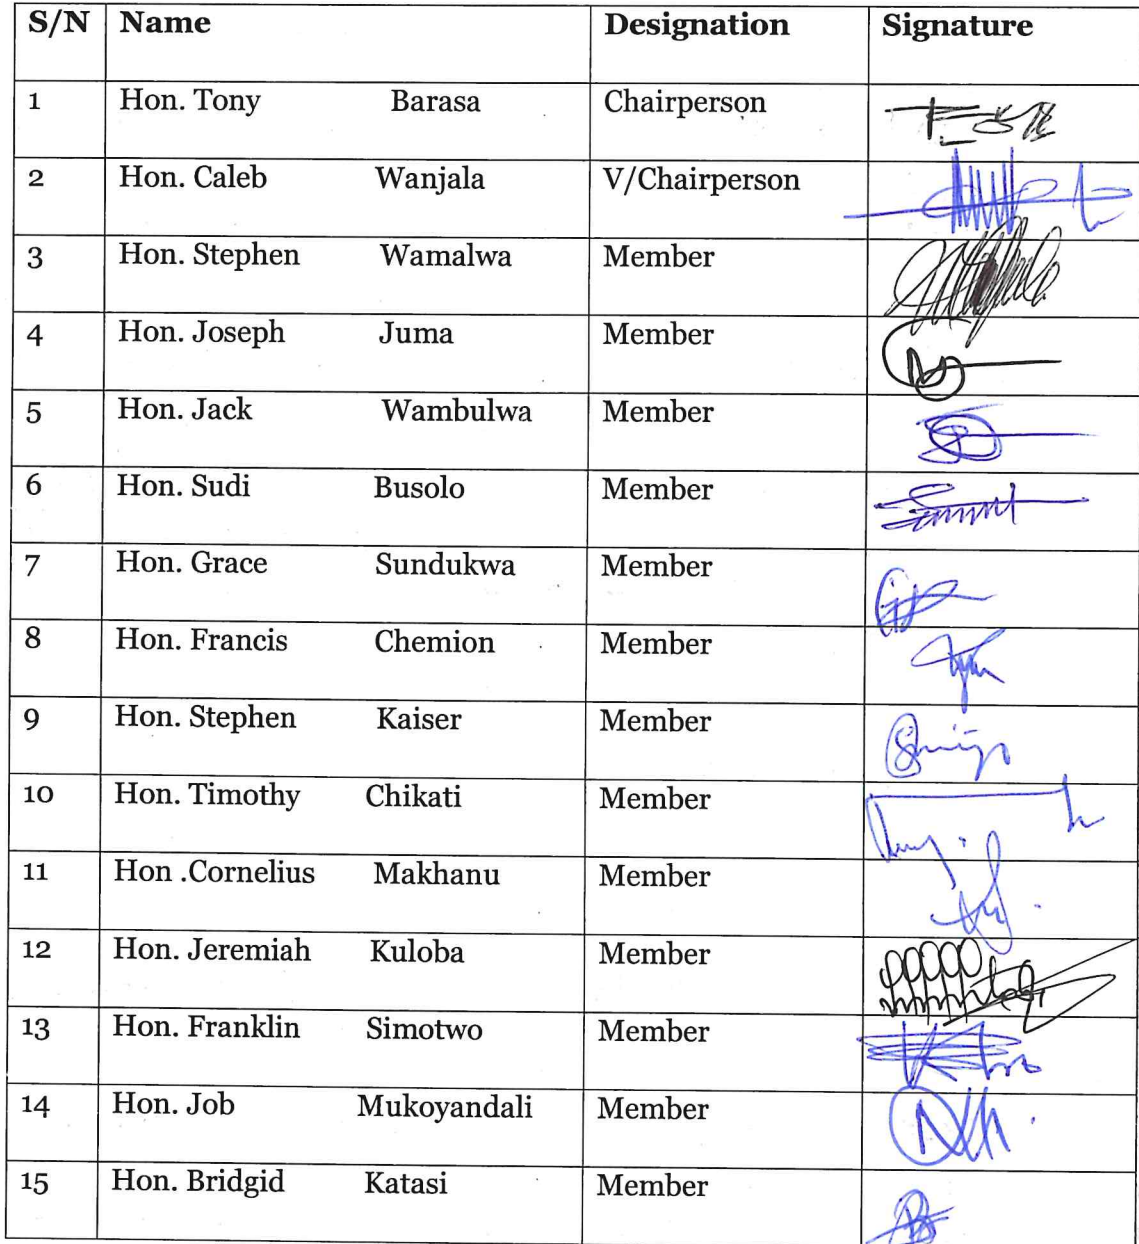 S/N Name Designation Signature
1 Hon. Tony Barasa Chairperson
2 Hon. Caleb Wanjala V/Chairperson
3 Hon. Stephen Wamalwa Member
4 Hon. Joseph Juma Member
5 Hon. Jack Wambulwa Member
6 Hon. Sudi Busolo Member
7 Hon. Grace Sundukwa Member
8 Hon. Francis Chemion Member
9 Hon. Stephen Kaiser Member
10 Hon. Timothy Chikati Member
11 Hon .Cornelius Makhanu Member
12 Hon. Jeremiah Kuloba Member
13 Hon. Franklin Simotwo Member
14 Hon. Job Mukoyandali Member
15 Hon. Bridgid Katasi Member